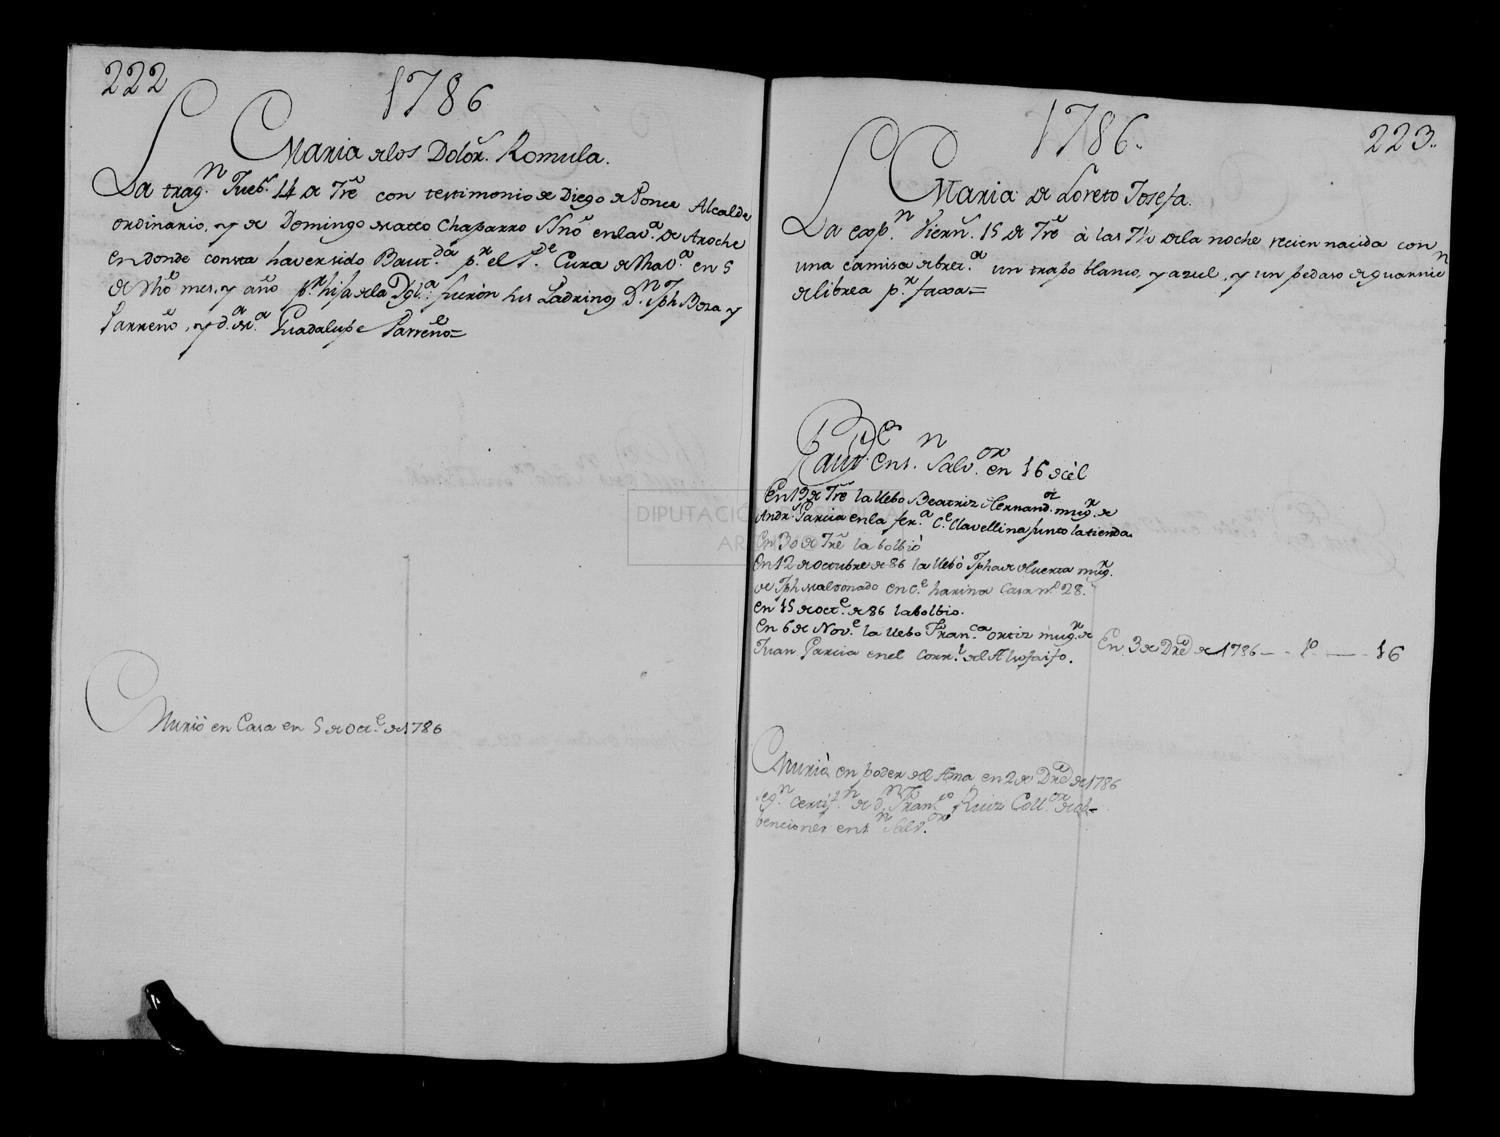 222
1786
Maria de los Dolor.s Romula.
La trag.n Jueb.s 14 de Tre con testimonio de Diego de Ponce Alcalde
ordinario, y de Domingo Marcos Chaparro SSno en la v.a de Aroche
en donde consta haver sido Baut.da p.r el P.e Cura de dha v.a en 5
de dho mes, y año p.r hija de la Igl.a: fueron sus Padrinos D.n Jph Bosa y
Parreño, y d.a M.a Guadalupe Parreño=
Murió en Casa en 5 de Oct.e de 1786
1786.
223.
Maria de Loreto Josefa.
La exp.n Viern.s 15 de Tre à las 7½ de la noche recien nacida con
una camisa de bret.a un trapo blanco, y azul, y un pedaso de guarnic.n
de librea p.r faxa=
Baut.ce en S.n Salv.or en 16 de él
En 19 de Tre la llebo Beatriz Hernand.z mug.r de
Andr.s Garcia en la fer.a C.e Clavellina junto la tienda
En 30 de Tre la bolbiò
En 12 de octubre de 86 la llebò Jpha de Huerta mug.r
de Jph Maldonado en C.e harina Casa n.o 28.
en 15 de oct.e de 86 la bolbio.
En 6 de Nov.e la llebo Fran.ca ortiz mug.r de
Juan Garcia en el Corr.l del Alsofaifo.
En 3 de Dre de 1786 — . . 1º —— . 16
Murió en poder del Ama en 2 de Dre de 1786
seg.n certif.n de d.n Fran.co Ruiz Coll.or de ob-
benciones en S.n Salv.or
DIPUTACIÓN SEVILLA